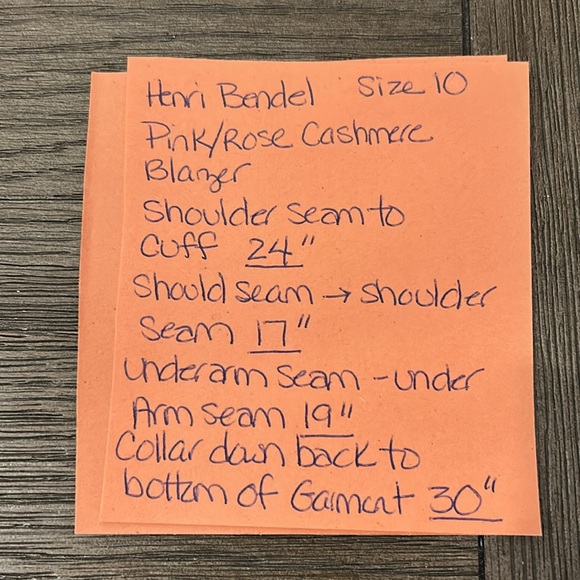 Henri Bendel Size 10
Pink/Rose Cashmere
Blazer
Shoulder seam to
Cuff 24"
Should seam → shoulder
seam 17"
underarm seam - under
Arm seam 19"
Collar down back to
bottom of Garment 30"